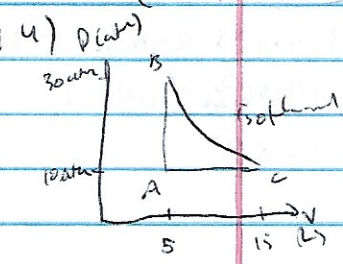 4) P(atm)
30atm
B
isothermal
10atm
A
C
V
5
15
(L)